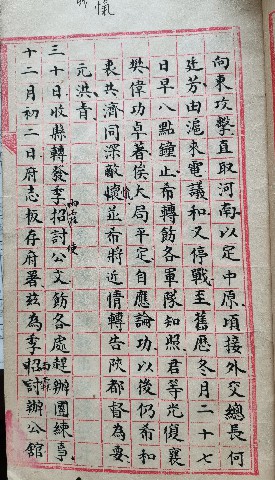 向東攻擊直取河南以定中原頃接外交總長何
廷芳由滬來電議和又停戰至舊歷冬月二十七
日早八點鐘止希轉飭各軍隊知照君等光復襄
樊偉功卓著俟大局平定自應論功以後仍希和
衷共濟同深敵愾並希將近情轉告陝都督為要
元洪青
三十日收縣轉發李招討公文飭各處趕辦團練事
十二月初二日府志板存府署茲為李招討辦公館